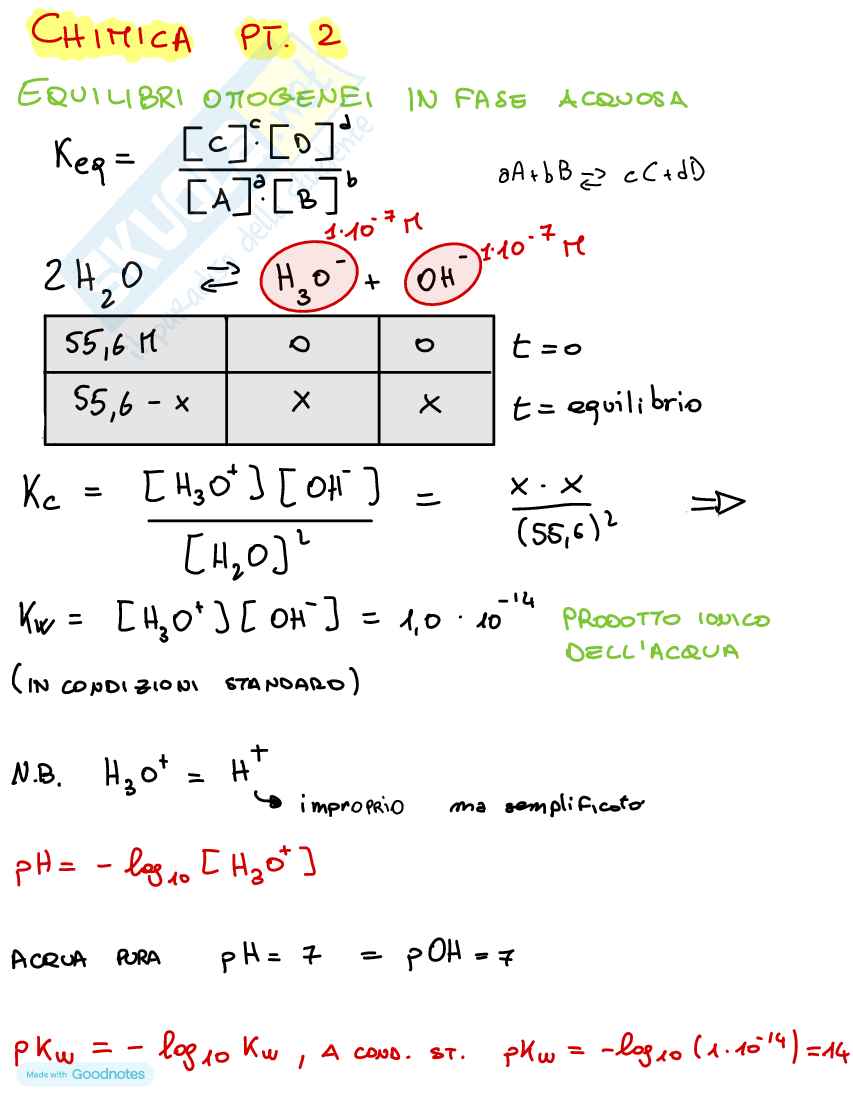 CHIMICA PT. 2
EQUILIBRI OMOGENEI IN FASE ACQUOSA
Keq = [C]^c · [D]^d / [A]^a · [B]^b
aA + bB ⇌ cC + dD
1·10^-7 M
1·10^-7 M
2H₂O ⇌ H₃O⁻ + OH⁻
55,6 M 0 0 t = 0
55,6 - x x x t = equilibrio
Kc = [H₃O⁺][OH⁻] / [H₂O]² = x · x / (55,6)² ⇒
Kw = [H₃O⁺][OH⁻] = 1,0 · 10^-14 PRODOTTO IONICO
DELL'ACQUA
(IN CONDIZIONI STANDARD)
N.B. H₃O⁺ = H⁺
↳ improprio ma semplificato
pH = - log₁₀ [H₃O⁺]
ACQUA PURA pH = 7 = pOH = 7
pKw = - log₁₀ Kw , A COND. ST. pKw = -log₁₀ (1·10^-14) = 14
Made with Goodnotes